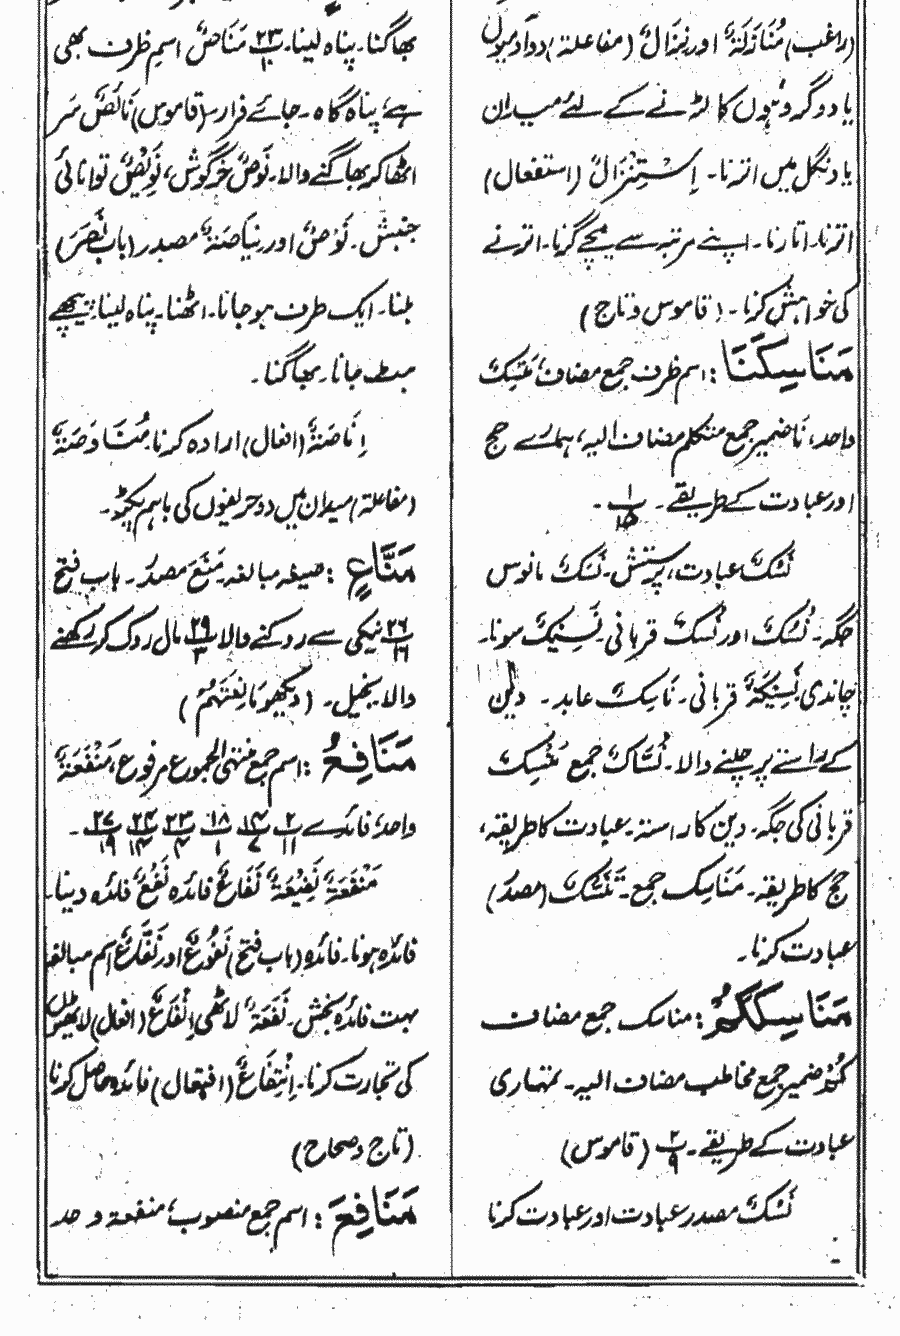 (راغب) مُنَازَلَۃٌ اور نِزَالٌ (مفاعلة) دو آدمیوں
یا دو گروہوں کا لڑنے کے لئے میدان
یا دنگل میں اترنا۔ اِسْتِنْزَالٌ (استفعال)
اترنا۔ اتارنا۔ اپنے مرتبہ سے نیچے گرنا۔ اترنے
کی خواہش کرنا۔ (قاموس و تاج)
مَنَاسِكَنَا: اسم ظرف جمع مضاف، مَنْسِکٌ
واحد، نَا ضمیر جمع متکلم مضاف الیہ، ہمارے حج
اور عبادت کے طریقے۔ ۱/۱۵۔
نُسُکٌ عبادت، پرستش۔ نَسْکٌ مانوس
جگہ۔ نُسُکٌ اور نُسْکٌ قربانی۔ نَسِیْکٌ سونا۔
چاندی نَسِیْکَۃٌ قربانی۔ نَاسِکٌ عابد۔ دین
کے راستے پر چلنے والا۔ نُسَّاکٌ جمع مَنْسِکٌ
قربانی کی جگہ۔ دین کا راستہ۔ عبادت کا طریقہ،
حج کا طریقہ۔ مَنَاسِک جمع۔ تَنَسُّکٌ (مصدر)
عبادت کرنا۔
مَنَاسِكَكُمْ: مناسک جمع مضاف
کُمْ ضمیر جمع مخاطب مضاف الیہ۔ تمہاری
عبادت کے طریقے۔ ۲/۹ (قاموس)
نُسُکٌ مصدر عبادت اور عبادت کرنا
۔
بھاگنا۔ پناہ لینا۔ ۲۳/۱۰ مَنَاصٌ اسم ظرف بھی
ہے، پناہ گاہ۔ جائے فرار (قاموس) نَائِصٌ سَر
اٹھا کر بھاگنے والا۔ نَوْصٌ خرگوش، نَوِیْصٌ توانائی
جنبش۔ نَوْصٌ اور نِیَاصَۃٌ مصدر (باب نَصَرَ)
ہٹنا۔ ایک طرف ہوجانا۔ اٹھنا۔ پناہ لینا۔ پیچھے
ہٹ جانا۔ بھاگنا۔
اِنَاصَۃٌ (افعال) ارادہ کرنا مُنَاوَصَۃٌ
(مفاعلة) میدان میں دو حریفوں کی باہم پکڑ۔
مَنَّاعٍ: صیغہ مبالغہ۔ مَنْعٌ مصدر۔ باب فتح
۲۶/۱۶ نیکی سے روکنے والا ۲۹/۳ مال روک کر رکھنے
والا بخیل۔ (دیکھو مَانِعَتُهُمْ)
مَنَافِعُ: اسم جمع منتہی الجموع مرفوع، مَنْفَعَۃٌ
واحد، فائدے ۲/۱۱ ۱۴/۷ ۱۸/۱ ۲۳/۴ ۲۴/۱۴ ۲۷/۱۹۔
مَنْفَعَۃٌ نَفِیْعَۃٌ نَفَاعٌ فائدہ نَفْعٌ فائدہ دینا۔
فائدہ ہونا۔ فائدہ (باب فتح) نَفُوْعٌ اور نَفَّاعٌ اسم مبالغہ
بہت فائدہ بخش۔ نَفْعَۃٌ لاٹھی اِنْفَاعٌ (افعال) لاٹھیوں
کی تجارت کرنا۔ اِنْتِفَاعٌ (افتعال) فائدہ حاصل کرنا
(تاج و صحاح)
مَنَافِعَ: اسم جمع منصوب، منفعۃ واحد